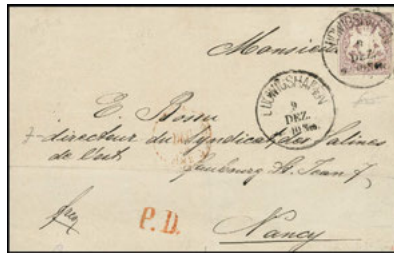 LUDWIGSHAFEN
9
DEZ.
Monsieur
LUDWIGSHAFEN
9
DEZ.
10
E.
7 directeur du Syndicat des Salines
de l'est faubourg St. Jean 7
P.D.
Nancy